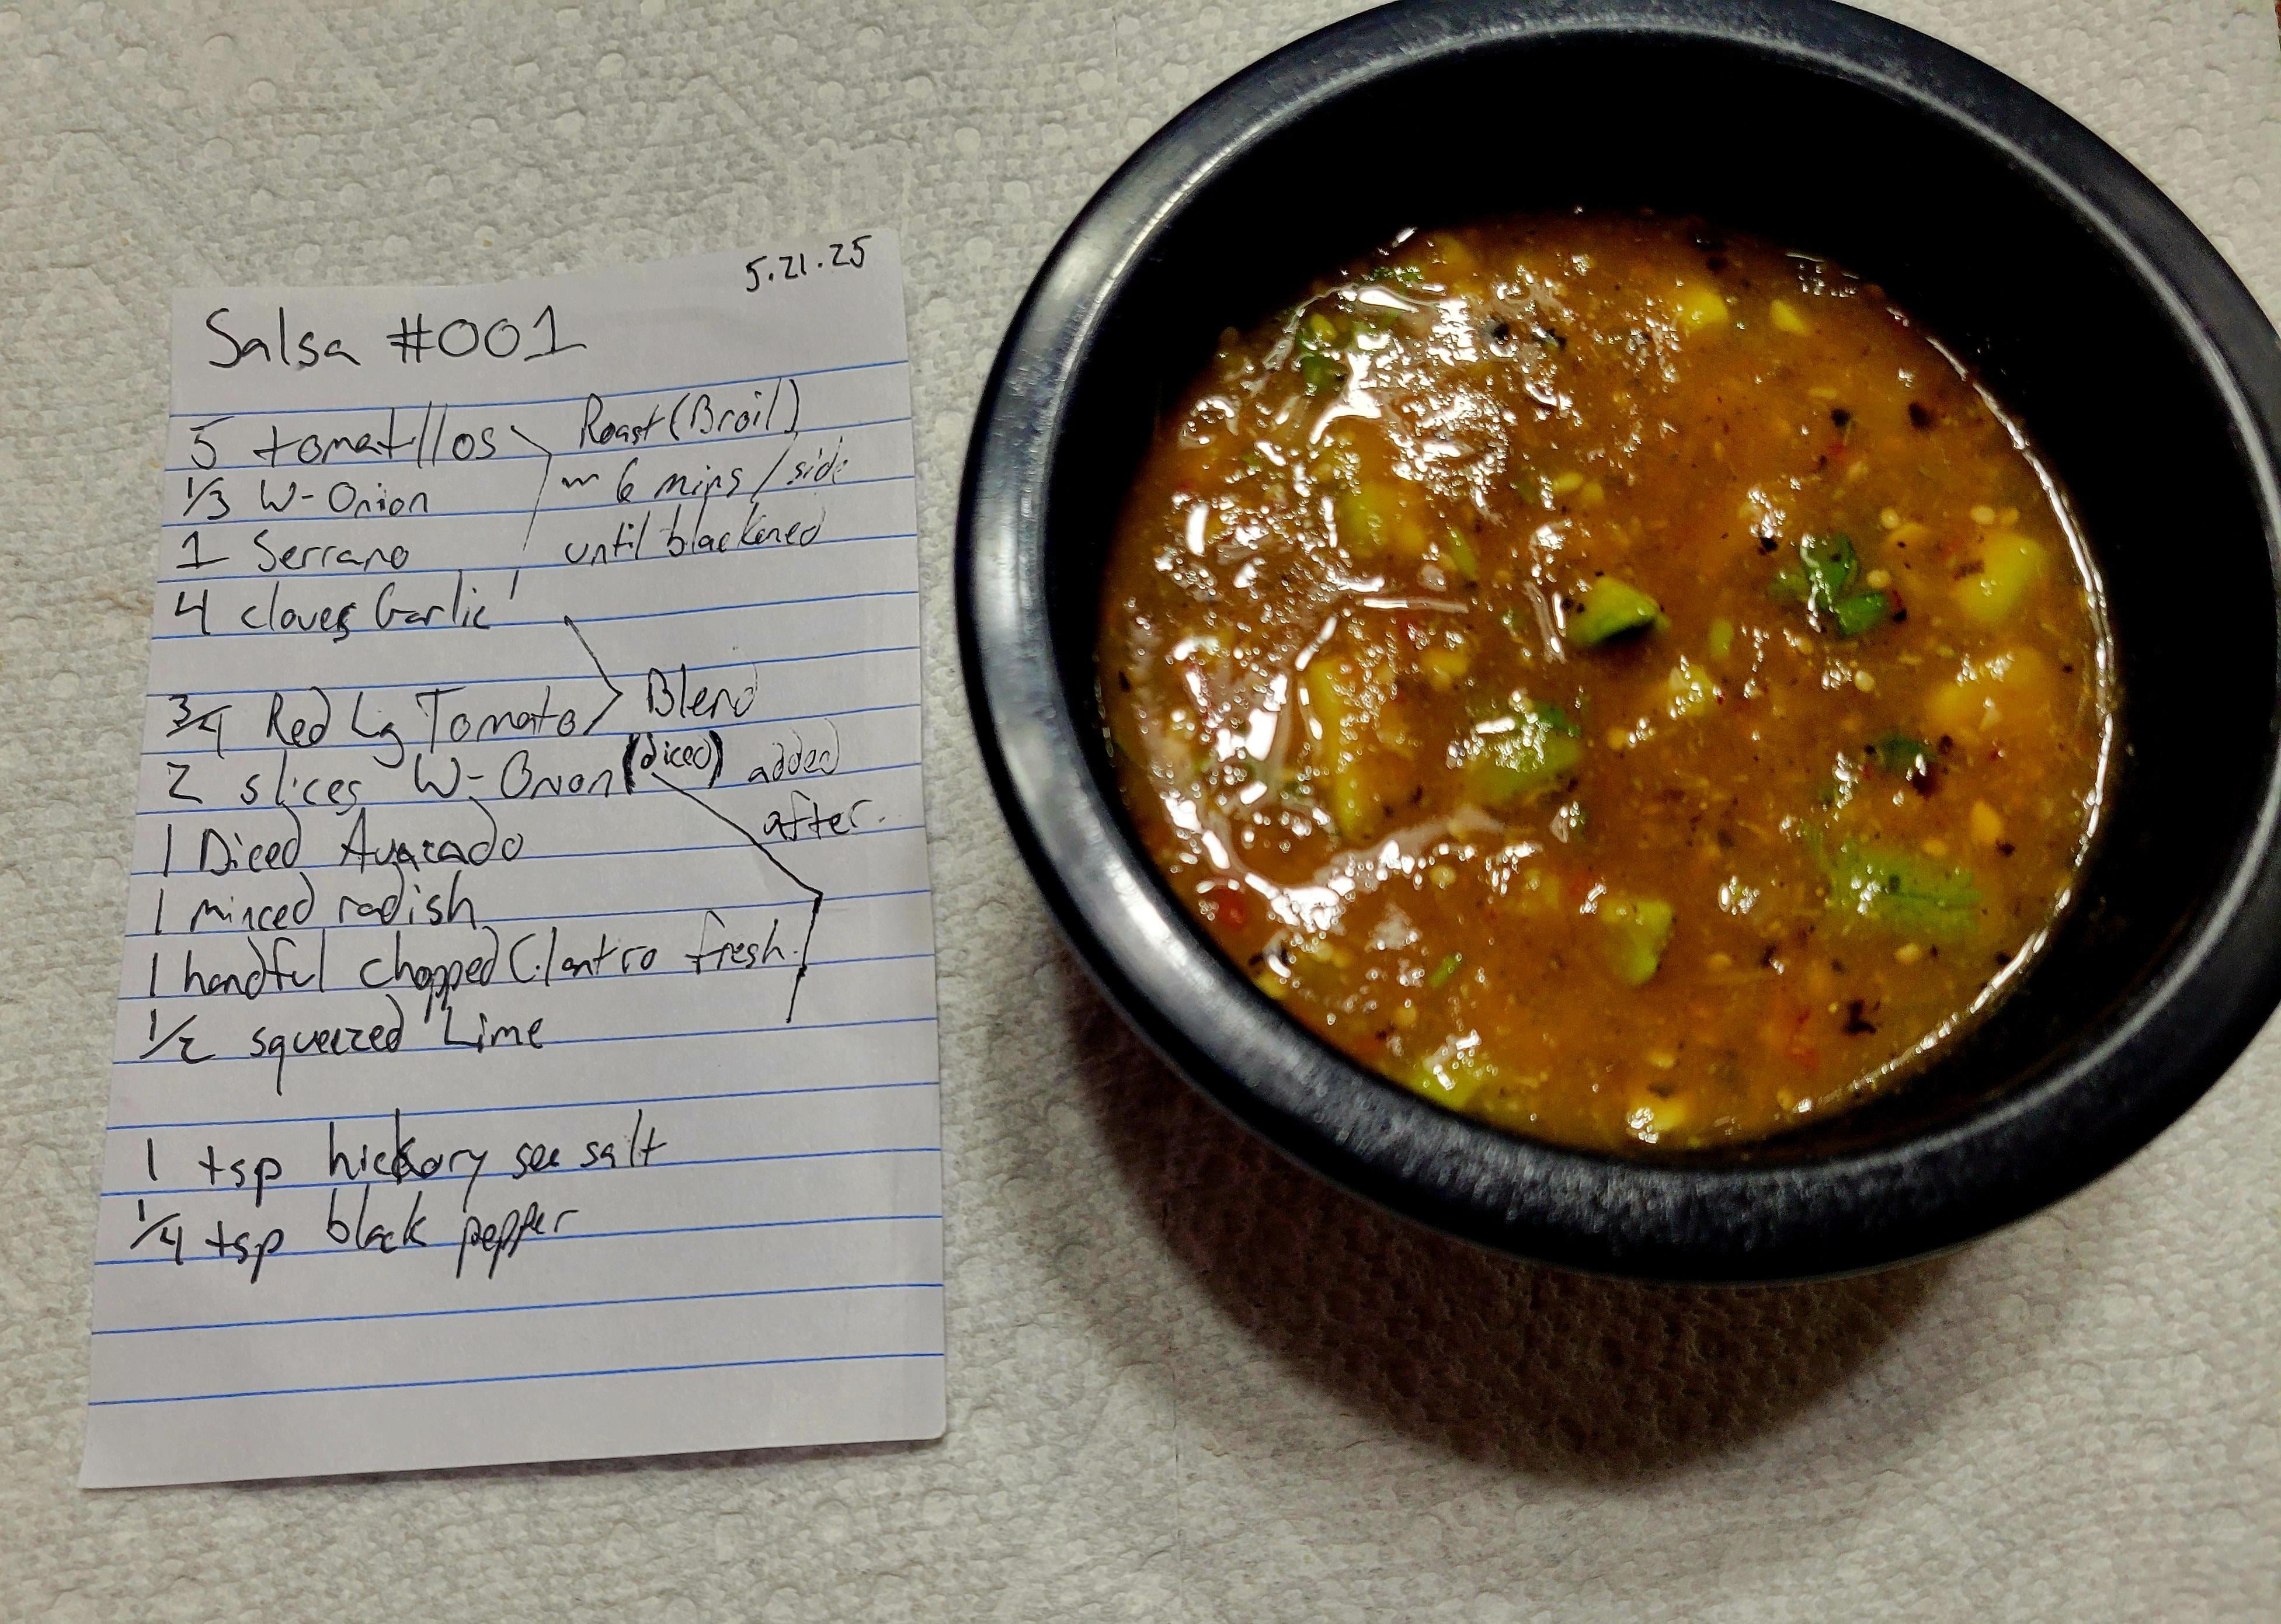 5.21.25
Salsa #001
5 tomatillos Roast (Broil)
1/3 W-Onion ~ 6 mins/side
1 Serrano until blackened
4 cloves Garlic
3/4 Red Lg Tomato Blend
2 slices W-Onion (diced) added
after.
1 Diced Avacado
1 minced radish
1 handful chopped Cilantro fresh.
1/2 squeezed Lime
1 tsp hickory sea salt
1/4 tsp black pepper